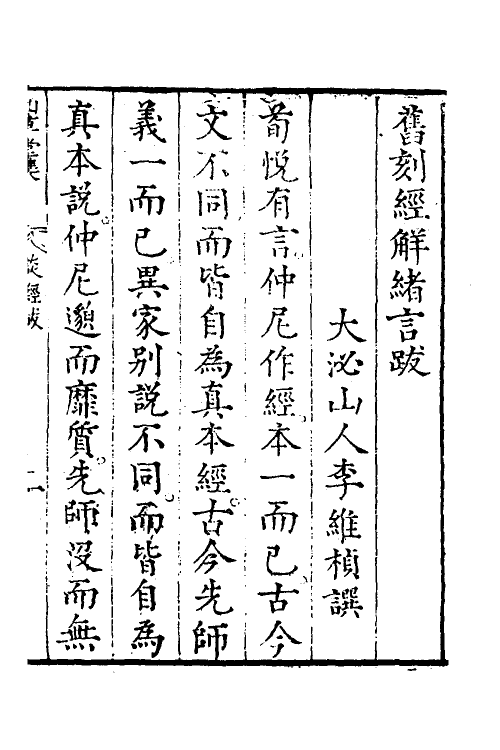 舊刻經解緒言跋
大泌山人李維楨譔
荀悅有言仲尼作經本一而已古今
文不同而皆自為真本經古今先師
義一而已異家别說不同而皆自為
真本說仲尼邈而靡質先師沒而無
談經跋